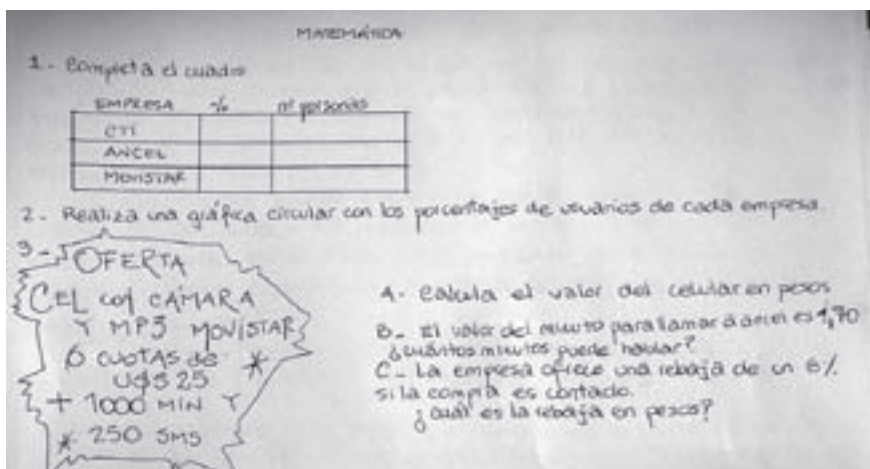 MATEMÁTICA
1 - Completa el cuadro
EMPRESA % nº personas
CTI
ANCEL
MOVISTAR
2 - Realiza una gráfica circular con los porcentajes de usuarios de cada empresa.
3 - OFERTA
CEL con CÁMARA
Y MP3 MOVISTAR
6 CUOTAS de
U$S 25
+ 1000 MIN Y
250 SMS
A - Calcula el valor del celular en pesos
B - El valor del minuto para llamar a ancel es 4,70
¿cuántos minutos puede hablar?
C - La empresa ofrece una rebaja de un 6%
si la compra es contado.
¿cuál es la rebaja en pesos?